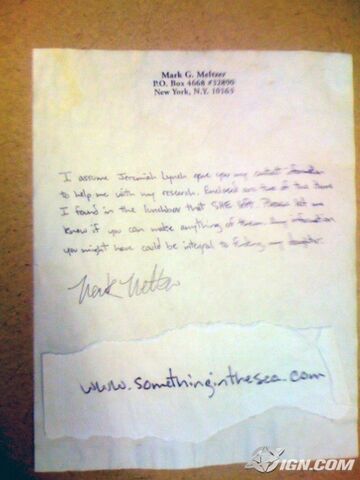 Mark G. Meltzer
P.O. Box 4668 #32800
New York, N.Y. 10163
I assume Jeremiah Lynch gave you my contact information
to help me with my research. Enclosed are two of the items
I found in the lunchbox that SHE left. Please let me
know if you can make anything of them. Any information
you might have could be integral to finding my daughter.
Mark Meltzer
www.somethinginthesea.com
IGN.COM